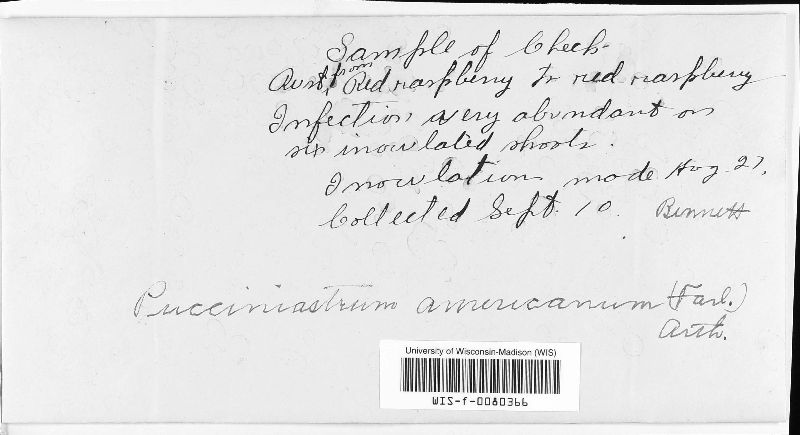 Sample of Check-
Rust from Red raspberry to red raspberry
Infection very abundant on
six inoculated shoots.
Inoculation made Aug 27,
Collected Sept. 10. Bennett
Pucciniastrum americanum (Farl.)
Arth.
University of Wisconsin-Madison (WIS)
WIS-f-0080366